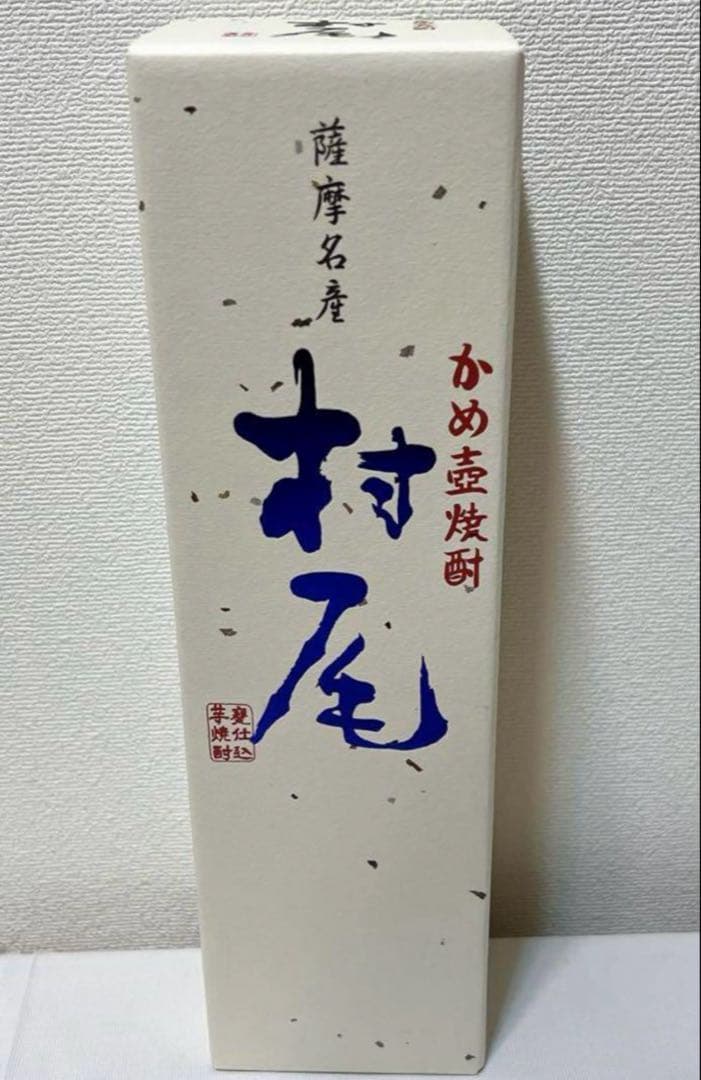 村尾
薩摩名産
かめ壺焼酎
村尾
甕仕込
芋焼酎